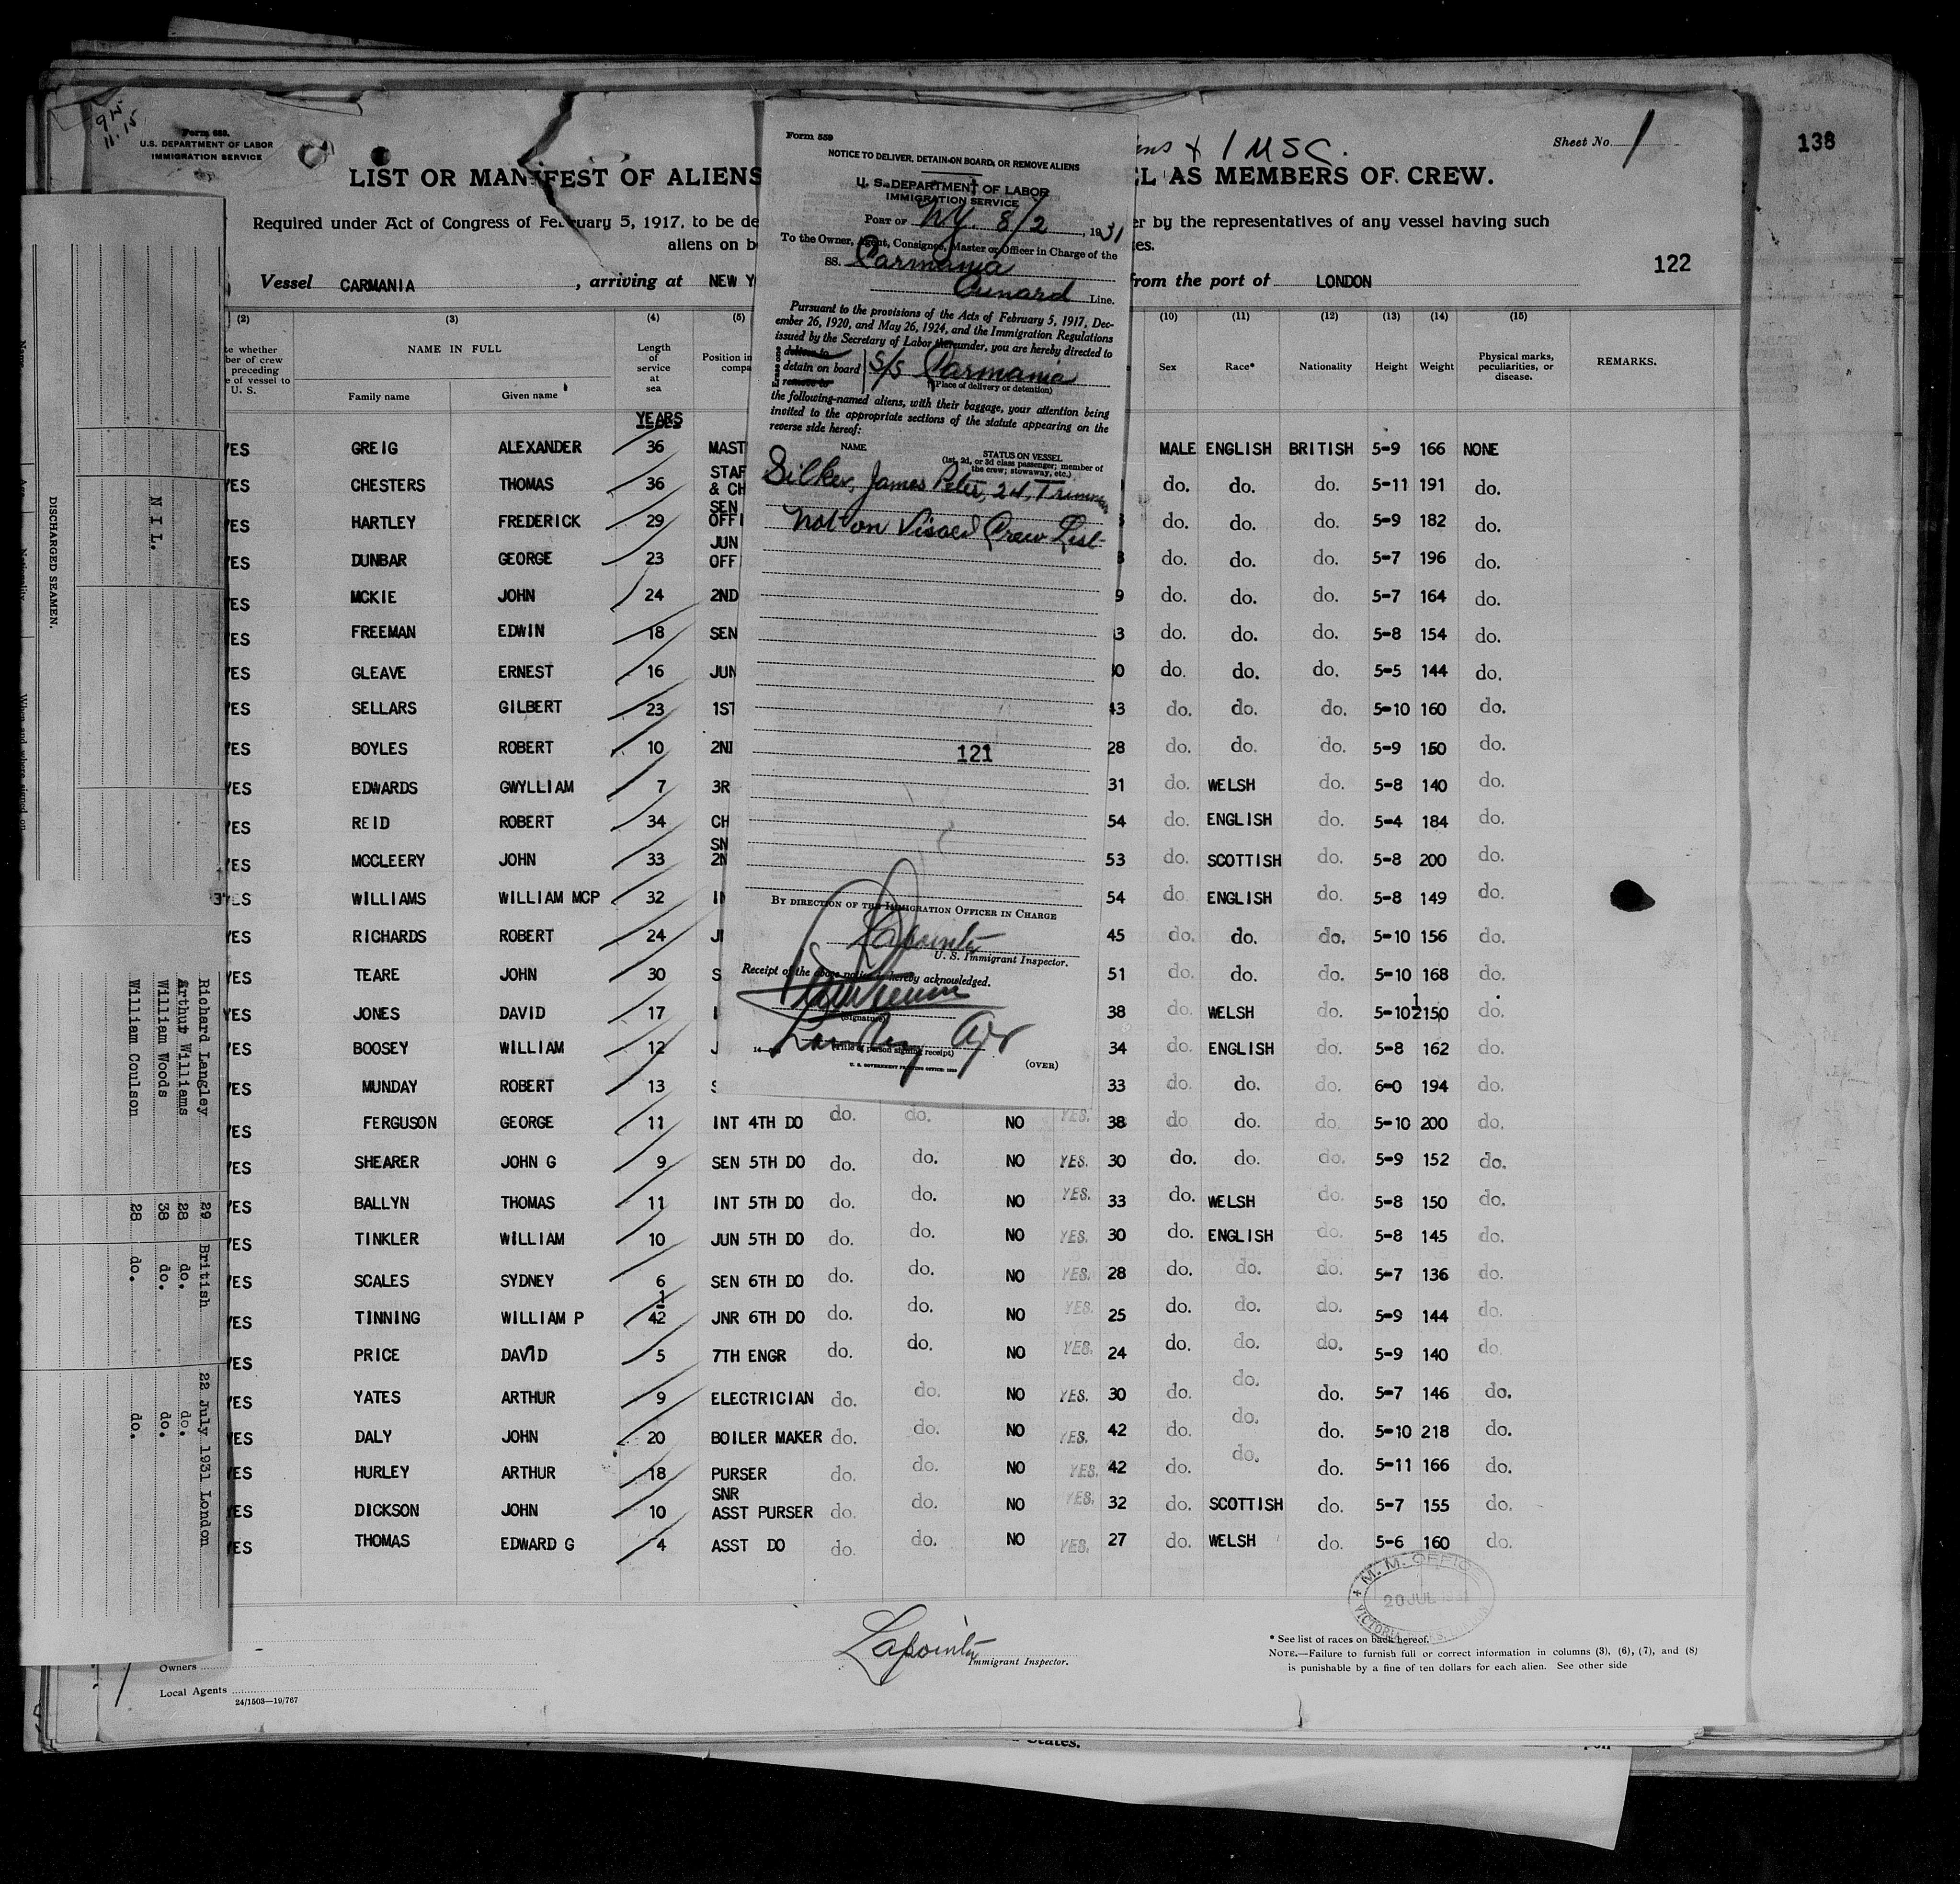 138
9 15
11.15
Form 689.
U.S. DEPARTMENT OF LABOR
IMMIGRATION SERVICE
Sheet No. 1
+ 1 USC.
LIST OR MANIFEST OF ALIENS
AS MEMBERS OF CREW.
Required under Act of Congress of February 5, 1917, to be de
er by the representatives of any vessel having such
aliens on b
es.
122
Vessel CARMANIA , arriving at NEW Y
rom the port of LONDON
Form 559
NOTICE TO DELIVER, DETAIN ON BOARD, OR REMOVE ALIENS
U. S. DEPARTMENT OF LABOR
IMMIGRATION SERVICE
PORT OF N.Y. 8/2, 1931
To the Owner, Agent, Consignee, Master or Officer in Charge of the
SS. Carmania
Cunard Line.
Pursuant to the provisions of the Acts of February 5, 1917, Dec-
ember 26, 1920, and May 26, 1924, and the Immigration Regulations
issued by the Secretary of Labor thereunder, you are hereby directed to
deliver to
detain on board S/S Carmania
remove to
(Place of delivery or detention)
the following-named aliens, with their baggage, your attention being
invited to the appropriate sections of the statute appearing on the
reverse side hereof:
NAME
STATUS ON VESSEL
(1st, 2d, or 3d class passenger; member of
the crew; stowaway, etc.)
Silker, James Peter, 24, Trimmer
Not on Visaed Crew List
121
BY DIRECTION OF THE IMMIGRATION OFFICER IN CHARGE
Lapointe
U. S. Immigrant Inspector.
Receipt of the above notice is hereby acknowledged.
(Signature)
(Title of person signing receipt)
(OVER)
U. S. GOVERNMENT PRINTING OFFICE
(2) (3) (4) (5) (10) (11) (12) (13) (14) (15)
te whether
ber of crew
preceding
e of vessel to
U. S.
NAME IN FULL
Family name Given name
Length
of
service
at
sea
Position in
compa
Sex Race* Nationality Height Weight
Physical marks,
peculiarities, or
disease.
REMARKS.
YEARS
YES GREIG ALEXANDER 36 MAST MALE ENGLISH BRITISH 5-9 166 NONE
YES CHESTERS THOMAS 36 STAF & CH do. do. do. 5-11 191 do.
YES HARTLEY FREDERICK 29 SEN OFFI do. do. do. 5-9 182 do.
YES DUNBAR GEORGE 23 JUN OFF do. do. do. 5-7 196 do.
YES MCKIE JOHN 24 2ND 9 do. do. do. 5-7 164 do.
YES FREEMAN EDWIN 18 SEN 3 do. do. do. 5-8 154 do.
YES GLEAVE ERNEST 16 JUN 0 do. do. do. 5-5 144 do.
YES SELLARS GILBERT 23 1ST 43 do. do. do. 5-10 160 do.
YES BOYLES ROBERT 10 2N 28 do. do. do. 5-9 150 do.
YES EDWARDS GWYLLIAM 7 3R 31 do. WELSH do. 5-8 140 do.
YES REID ROBERT 34 CH 54 do. ENGLISH do. 5-4 184 do.
YES MCCLEERY JOHN 33 SN 2N 53 do. SCOTTISH do. 5-8 200 do.
YES WILLIAMS WILLIAM MCP 32 IN 54 do ENGLISH do. 5-8 149 do.
YES RICHARDS ROBERT 24 J 45 do. do. do. 5-10 156 do.
YES TEARE JOHN 30 S 51 do. do. do. 5-10 168 do.
YES JONES DAVID 17 I 38 do. WELSH do. 5-10½ 150 do.
YES BOOSEY WILLIAM 12 J 34 do. ENGLISH do. 5-8 162 do.
YES MUNDAY ROBERT 13 S 33 do. do. do. 6-0 194 do.
YES FERGUSON GEORGE 11 INT 4TH DO do. do. NO YES. 38 do do. do. 5-10 200 do.
YES SHEARER JOHN G 9 SEN 5TH DO do. do. NO YES. 30 do. do. do. 5-9 152 do.
YES BALLYN THOMAS 11 INT 5TH DO do. do. NO YES. 33 do. WELSH do. 5-8 150 do.
YES TINKLER WILLIAM 10 JUN 5TH DO do. do. NO YES. 30 do. ENGLISH do. 5-8 145 do.
YES SCALES SYDNEY 6 SEN 6TH DO do. do. NO YES. 28 do. do. do. 5-7 136 do.
YES TINNING WILLIAM P 4½ JNR 6TH DO do. do. NO YES. 25 do. do. do. 5-9 144 do.
YES PRICE DAVID 5 7TH ENGR do. do. NO YES. 24 do. do. do. 5-9 140 do.
YES YATES ARTHUR 9 ELECTRICIAN do. do. NO YES. 30 do. do. do. 5-7 146 do.
YES DALY JOHN 20 BOILER MAKER do. do. NO YES. 42 do. do. do. 5-10 218 do.
YES HURLEY ARTHUR 18 PURSER do. do. NO YES. 42 do. do. do. 5-11 166 do.
YES DICKSON JOHN 10 SNR ASST PURSER do. do. NO YES. 32 do. SCOTTISH do. 5-7 155 do.
YES THOMAS EDWARD G 4 ASST DO do. do. NO YES. 27 do. WELSH do. 5-6 160 do.
DISCHARGED SEAMEN.
N I L.
Richard Langley 29 British 22 July 1931 London
Arthur Williams 28 do. do.
William Woods 38 do. do.
William Coulson 28 do. do.
M. M. OFFICE
20 JUL 1931
VICTORIA DOCKS
Lapointe
Immigrant Inspector.
* See list of races on back hereof.
NOTE.—Failure to furnish full or correct information in columns (3), (6), (7), and (8)
is punishable by a fine of ten dollars for each alien. See other side
Owners
Local Agents
24/1503—19/767
States.